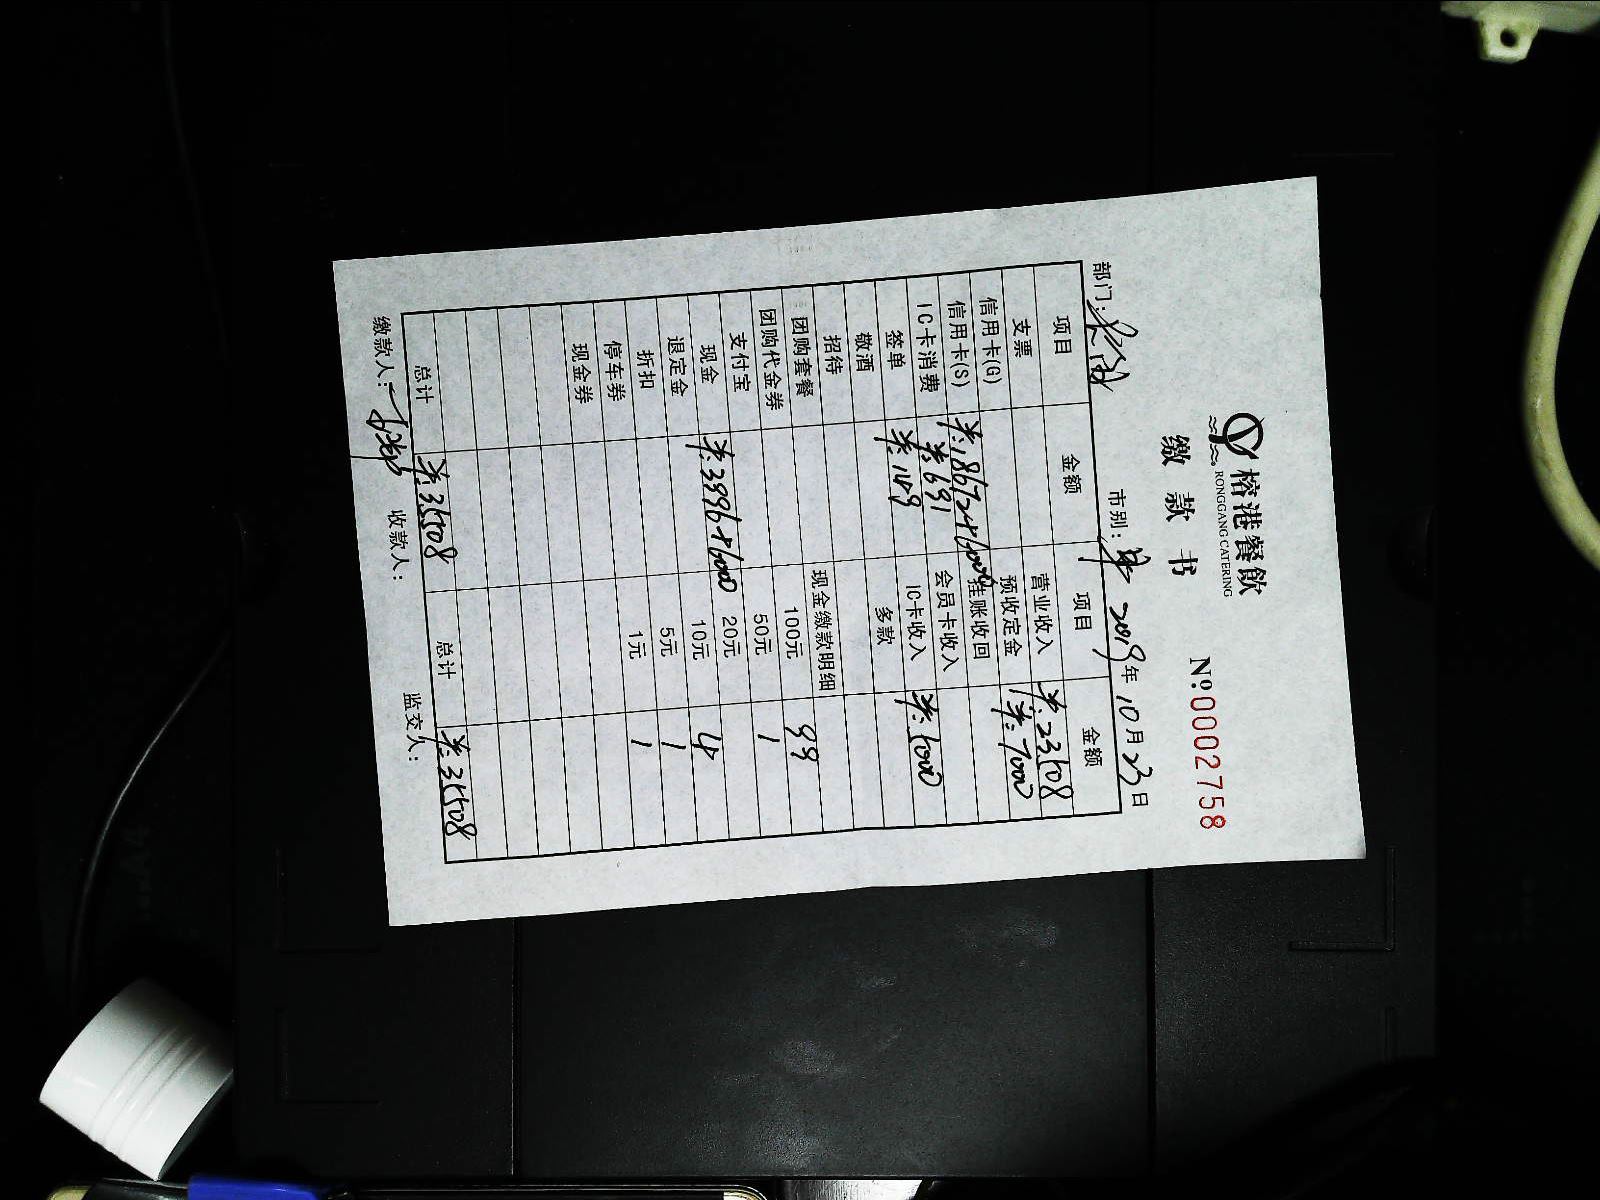 榕港餐飲
RONGGANG CATERING
缴 款 书 №:0002758
部门: 市别: 2019年10月23日
项目 金额 项目 金额
支票 营业收入 ¥:23508
信用卡(G) 预收定金 ¥:7000
信用卡(S) ¥:18672+6000 挂账收回
IC卡消费 ¥:691 会员卡收入
签单 ¥:149 IC卡收入 ¥:5000
敬酒 多款
招待
团购套餐 现金缴款明细
团购代金券 100元 99
支付宝 50元 1
现金 ¥:3996+6000 20元
退定金 10元 4
折扣 5元 1
停车券 1元 1
现金券
总计 ¥:35508 总计 ¥:35508
缴款人: 收款人: 监交人: